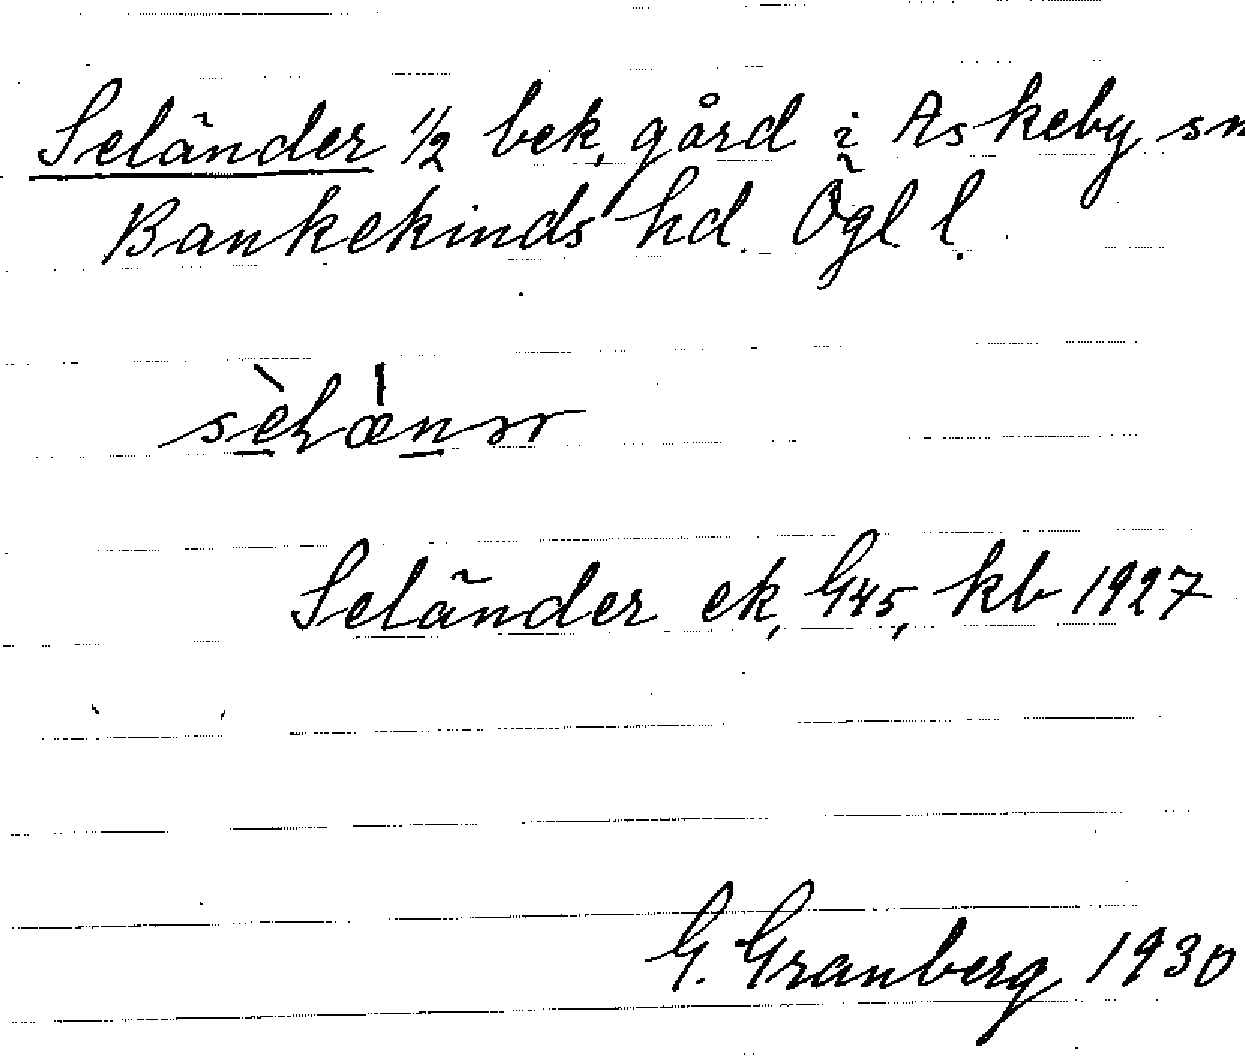 Seländer 1/2 bek, gård i Askeby sn
Bankekinds hd. Ögl l.
Seländer ek, G45, kb 1927
G. Granberg 1930